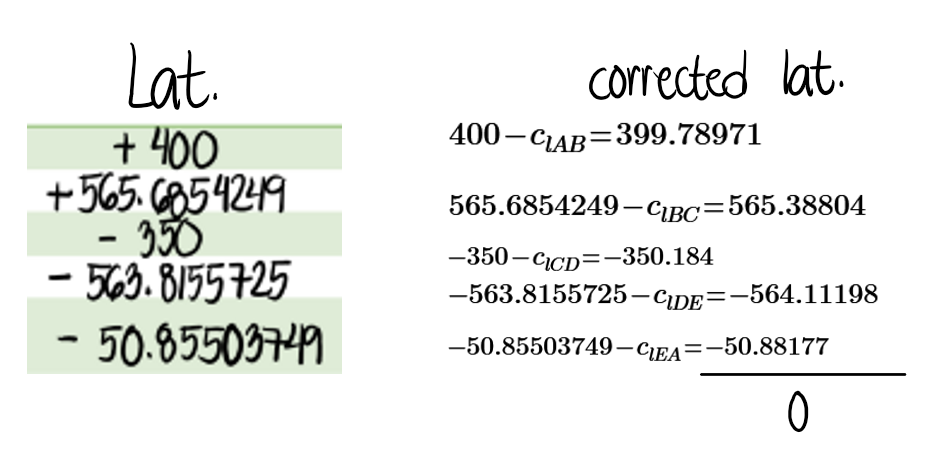 Lat.
+ 400
+565.6854249
- 350
- 563.8155725
- 50.85503749
corrected lat.
400−c_{lAB}=399.78971
565.6854249−c_{lBC}=565.38804
−350−c_{lCD}=−350.184
−563.8155725−c_{lDE}=−564.11198
−50.85503749−c_{lEA}=−50.88177
0